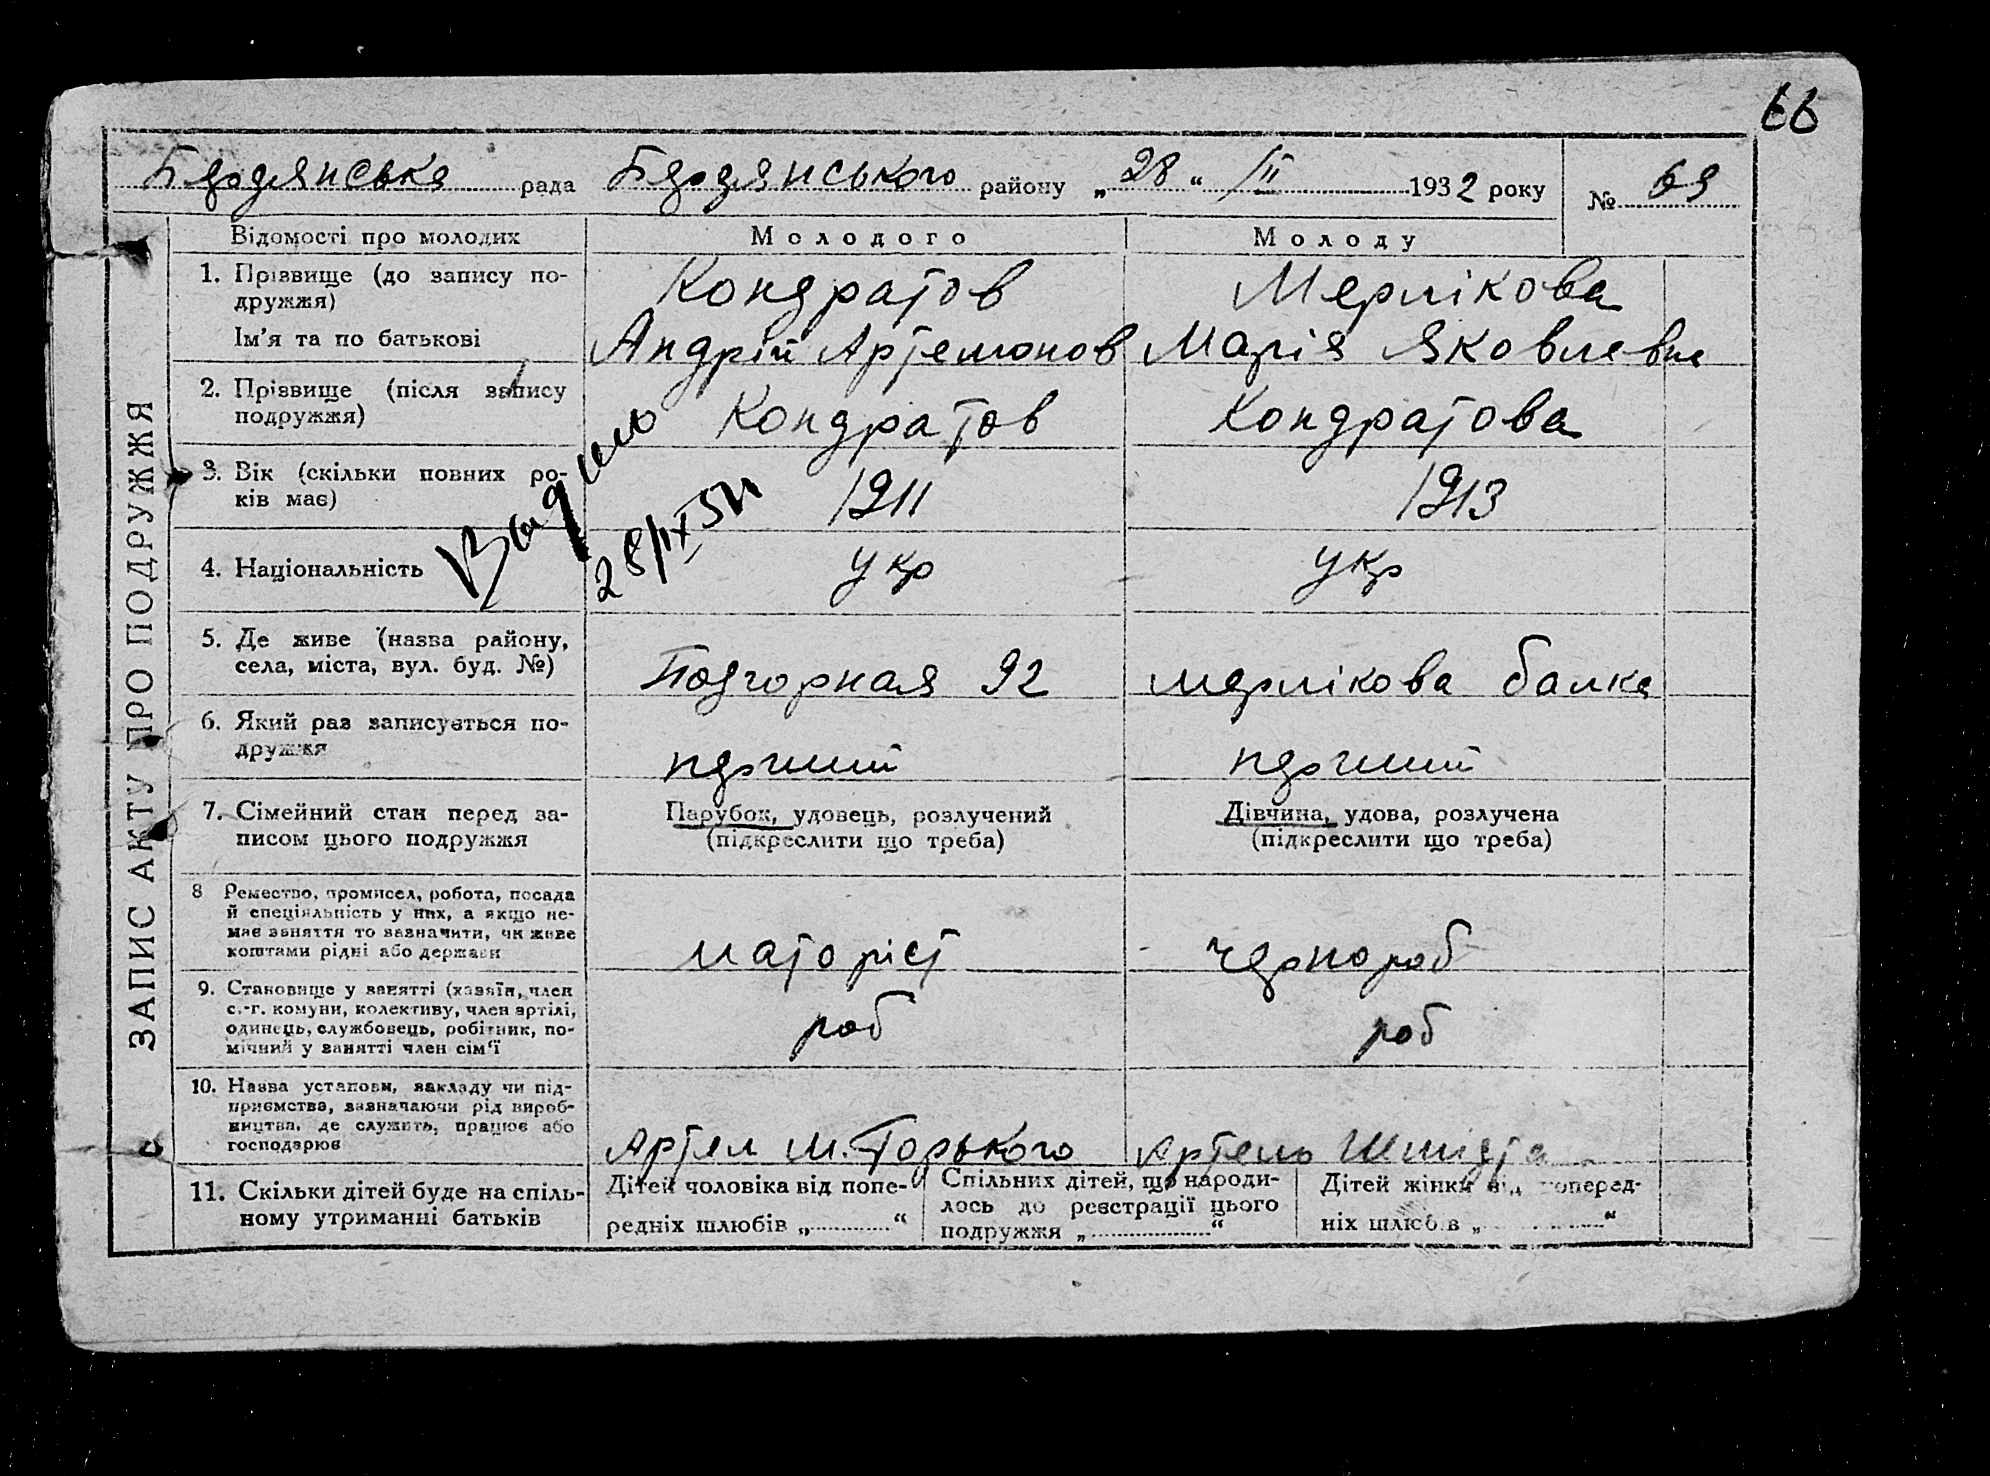 66
Бердянська рада Бердянського району „28“ /II 1932 року № 69
ЗАПИС АКТУ ПРО ПОДРУЖЖЯ
Відомості про молодих Молодого Молоду
1. Прізвище (до запису по-
дружжя) Кондратов Мерлікова
Ім'я та по батькові Андрій Артемонов Марія Яковлевна
2. Прізвище (після запису
подружжя) Кондратов Кондратова
3. Вік (скільки повних ро-
ків має) 1911 1913
28/IX 51
4. Національність укр укр
5. Де живе (назва району,
села, міста, вул. буд. №) Подгорная 92 мерлікова балка
6. Який раз записується по-
дружжя перший перший
7. Сімейний стан перед за-
писом цього подружжя
Парубок, удовець, розлучений
(підкреслити що треба)
Дівчина, удова, розлучена
(підкреслити що треба)
8 Ремество, промисел, робота, посада
й спеціяльність у них, а якщо не-
має заняття то зазначити, чи живе
коштами рідні або держави маторіст чернороб
9. Становище у занятті (хазяїн, член
с.-г. комуни, колективу, член артілі,
одинець, службовець, робітник, по-
мічний у занятті член сім'ї роб роб
10. Назва установи, закладу чи під-
приємства, зазначаючи рід вироб-
ництва, де служить, працює або
господарює Артел М. Горького Артель Шмідта
11. Скільки дітей буде на спіль-
ному утриманні батьків
Дітей чоловіка від попе-
редніх шлюбів „ “
Спільних дітей, що народи-
лось до реєстрації цього
подружжя „ “
Дітей жінки від поперед-
ніх шлюбів „ “